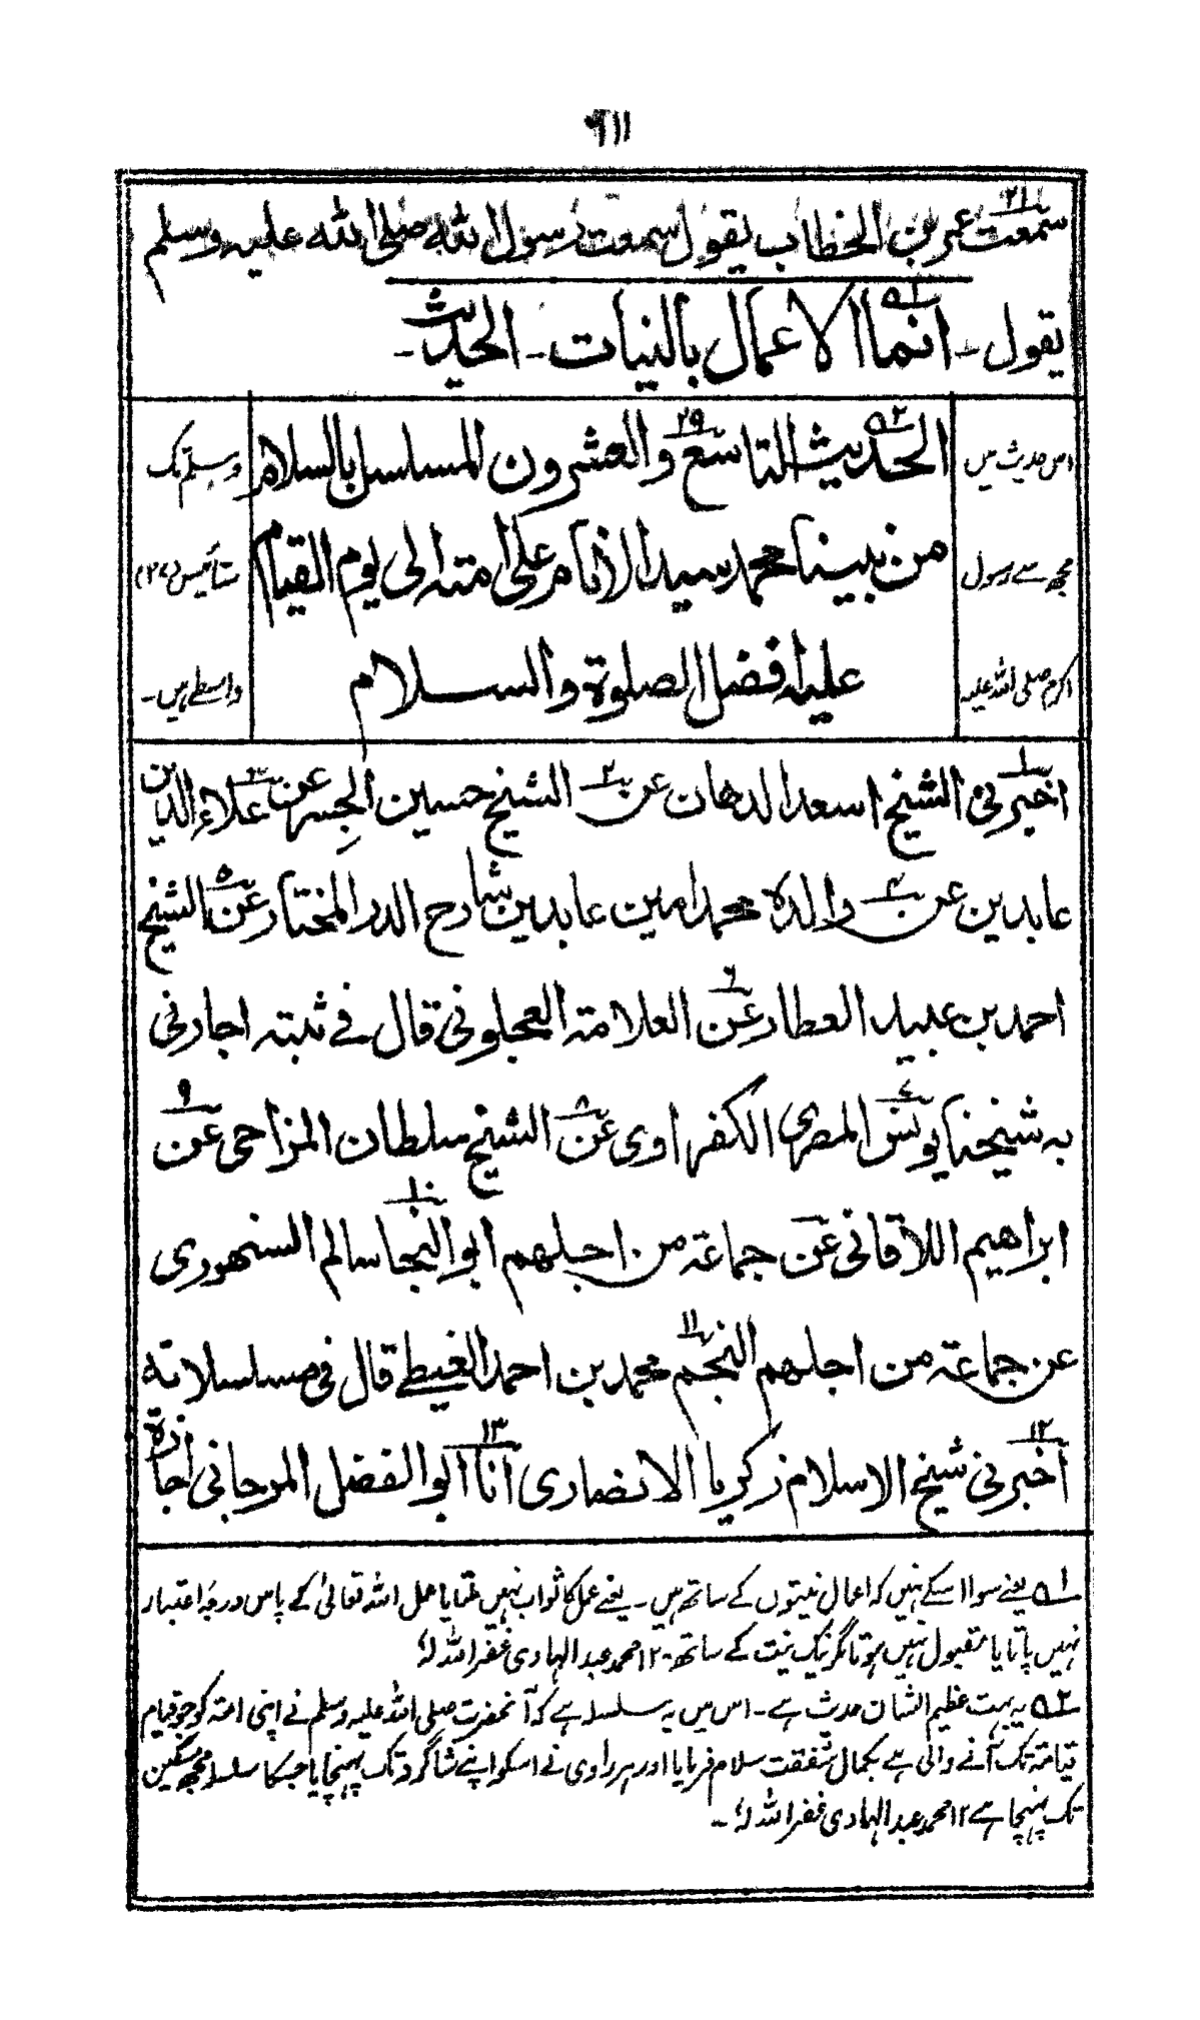 ١١٦
سمعت عمر بن الخطاب يقول سمعت رسول الله صلى الله عليه وسلم
يقول - انما الاعمال بالنيات - الحديث -
الحديث التاسع والعشرون المسلسل بالسلام
من نبينا محمد سيد الانام على امته الى يوم القيام
عليه افضل الصلوة والسلام
اس حدیث میں
مجھ سے رسول
اکرم صلی اللہ علیہ
وسلم تک
ستائیس (۲۷)
واسطے ہیں -
اخبرني الشيخ اسعد الدهان عن الشيخ حسين الجسر عن علاء الدين
عابدين عن والده محمد امين عابدين شارح الدر المختار عن الشيخ
احمد بن عبيد العطار عن العلامة العجلوني قال في ثبته اجازني
به شيخنا يونس المصري الكفراوي عن الشيخ سلطان المزاحي عن
ابراهيم اللاقاني عن جماعة من اجلهم ابو النجا سالم السنهوري
عن جماعة من اجلهم النجم محمد بن احمد الغيطي قال في مسلسلاته
اخبرني شيخ الاسلام زكريا الانصاري انا ابو الفضل المرجاني اجازة
۱ یعنے سوا اسکے نہیں کہ اعمال نیتوں کے ساتھ ہیں - یعنے عمل کا ثواب نہیں ملتا یا عمل اللہ تعالیٰ کے پاس درجۂ اعتبار
نہیں پاتا یا مقبول نہیں ہوتا مگر نیک نیت کے ساتھ ۱۲ محمد عبد الہادی غفر اللہ لہٗ
۲ یہ بہت عظیم الشان حدیث ہے - اس میں یہ سلسلہ ہے کہ آنحضرت صلی اللہ علیہ وسلم نے اپنی امۃ کو جو قیام
قیامۃ تک آنے والی ہے بکمال شفقت سلام فرمایا اور ہر راوی نے اسکو اپنے شاگرد تک پہنچایا جسکا سلسلہ مجھ مسکین
تک پہنچا ہے ۱۲ محمد عبد الہادی غفر اللہ لہٗ -